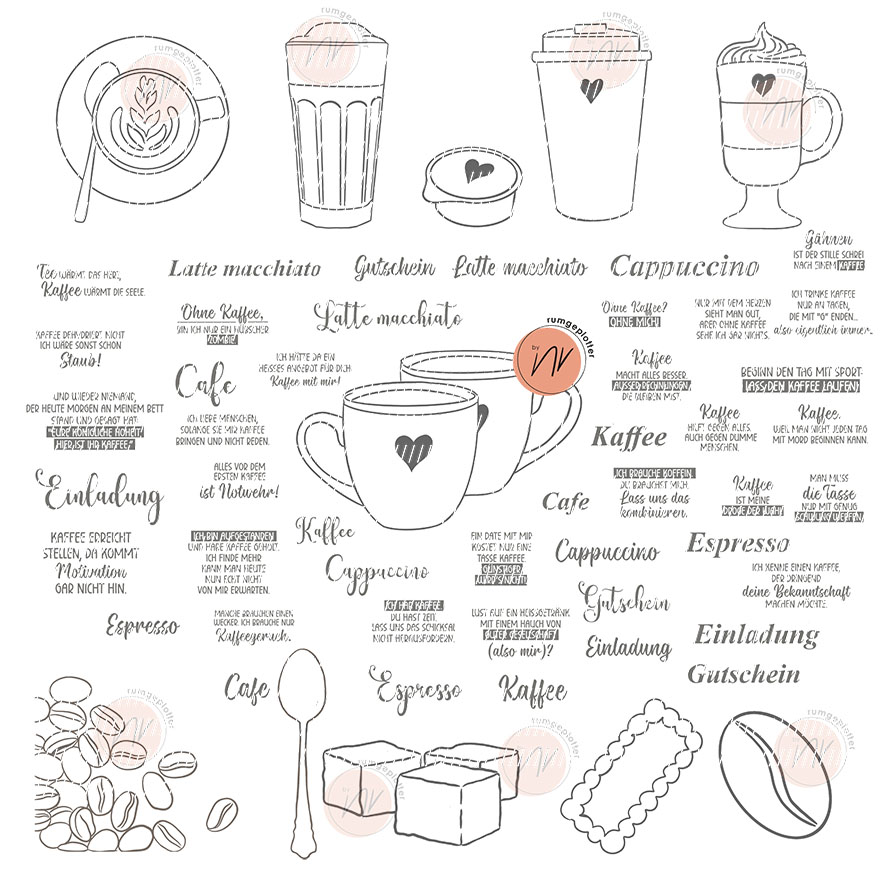 rumgeplotter
rumgeplotter
rumgeplotter
rumgeplotter
Tee WÄRMT DAS HERZ,
Kaffee WÄRMT DIE SEELE.
Latte macchiato
Gutschein
Latte macchiato
Cappuccino
Gähnen
IST DER STILLE SCHREI
NACH EINEM KAFFEE
Ohne Kaffee,
BIN ICH NUR EIN HÜBSCHER
ZOMBIE!
Latte macchiato
by
rumgeplotter
Ohne Kaffee?
OHNE MICH!
NUR MIT DEM HERZEN
SIEHT MAN GUT,
ABER OHNE KAFFEE
SEHE ICH GAR NICHTS.
ICH TRINKE KAFFEE
NUR AN TAGEN,
DIE MIT "G" ENDEN...
also eigentlich immer.
KAFFEE DEHYDRIERT NICHT
ICH WÄRE SONST SCHON
Staub!
ICH HÄTTE DA EIN
HEISSES ANGEBOT FÜR DICH:
Kaffee mit mir!
Cafe
Kaffee
MACHT ALLES BESSER.
AUSSER BEZIEHUNGEN,
DIE BLEIBEN MIST.
BEGINN DEN TAG MIT SPORT:
LASS DEN KAFFEE LAUFEN!
UND WIEDER NIEMAND,
DER HEUTE MORGEN AN MEINEM BETT
STAND UND GESAGT HAT:
"EURE KÖNIGLICHE HOHEIT
HIER IST IHR KAFFEE."
ICH LIEBE MENSCHEN,
SOLANGE SIE MIR KAFFEE
BRINGEN UND NICHT REDEN.
Kaffee
Kaffee
HILFT GEGEN ALLES.
AUCH GEGEN DUMME
MENSCHEN.
Kaffee,
WEIL MAN NICHT JEDEN TAG
MIT MORD BEGINNEN KANN.
Einladung
ALLES VOR DEM
ERSTEN KAFFEE
ist Notwehr!
Cafe
ICH BRAUCHE KOFFEIN.
DU BRAUCHST MICH.
Lass uns das
kombinieren.
Kaffee
IST MEINE
DROGE DER WAHL!
MAN MUSS
die Tasse
NUR MIT GENUG
SCHWUNG WERFEN
KAFFEE ERREICHT
STELLEN, DA KOMMT
Motivation
GAR NICHT HIN.
ICH BIN AUFGESTANDEN
UND HABE KAFFEE GEHOLT.
ICH FINDE MEHR
KANN MAN HEUTE
NUN ECHT NICHT
VON MIR ERWARTEN.
Kaffee
Cappuccino
EIN DATE MIT MIR
KOSTET NUR EINE
TASSE KAFFEE.
GÜNSTIGER
WIRD'S NICHT!
Cappuccino
Espresso
ICH KENNE EINEN KAFFEE,
DER DRINGEND
deine Bekanntschaft
MACHEN MÖCHTE.
Gutschein
Espresso
MANCHE BRAUCHEN EINEN
WECKER. ICH BRAUCHE NUR
Kaffeegeruch.
ICH HAB KAFFEE.
DU HAST ZEIT.
LASS UNS DAS SCHICKSAL
NICHT HERAUSFORDERN.
LUST AUF EIN HEISSGETRÄNK
MIT EINEM HAUCH VON
GUTER GESELLSCHAFT
(also mir)?
Einladung
Einladung
Gutschein
Cafe
Espresso
Kaffee
rumgeplotter
rumgeplotter
rumgeplotter
rumgeplotter